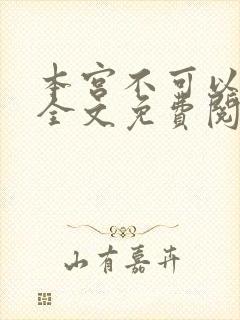 本宫不可以
全文免费阅
山有嘉卉